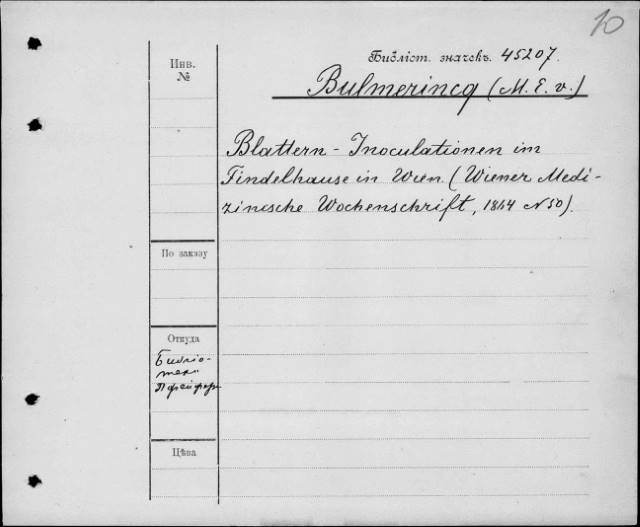 10
Инв.
№
Библіот. значекъ. 45207.
Bulmerincq (M. E. v.)
Blattern - Inoculationen im
Findelhause in Wien. (Wiener Medi-
zinische Wochenschrift, 1864 N 50).
По заказу
Откуда
Библіо-
теки
Цѣна